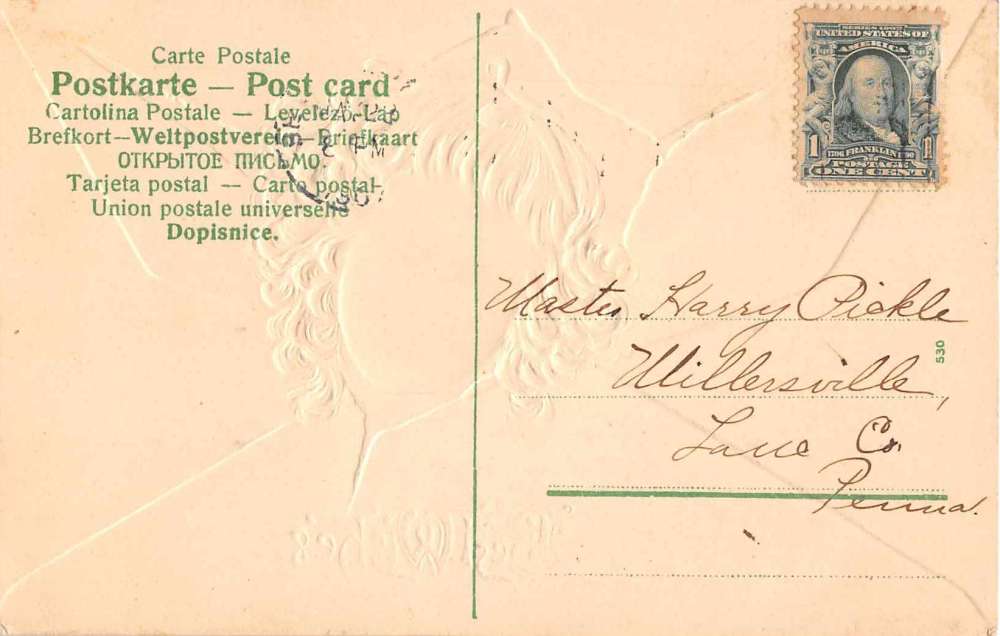 Carte Postale
Postkarte — Post card
Cartolina Postale — Levelező-Lap
Brefkort—Weltpostverein—Briefkaart
ОТКРЫТОЕ ПИСЬМО.
Tarjeta postal — Carto postal
Union postale universelle
Dopisnice.
PM
SERIES 1902
UNITED STATES OF
AMERICA
1706 FRANKLIN 1790
1 POSTAGE 1
ONE CENT
Master Harry Pickle
Millersville,
530
Lanc Co.
Penna.